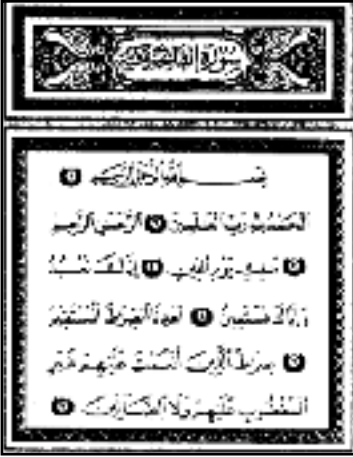 سورة الفاتحة
بسم الله الرحمن الرحيم ١
الحمد لله رب العلمين ٢ الرحمن الرحيم
٣ ملك يوم الدين ٤ إياك نعبد
وإياك نستعين ٥ اهدنا الصرط المستقيم
٦ صرط الذين أنعمت عليهم غير
المغضوب عليهم ولا الضالين ٧